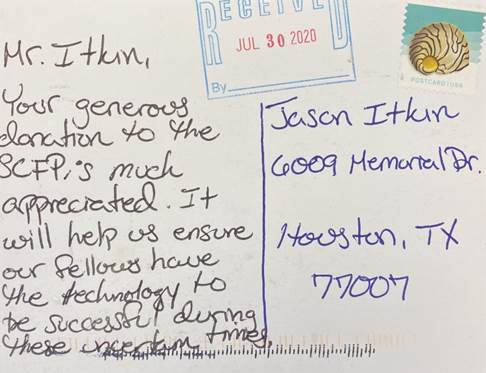 RECEIVED
JUL 30 2020
By
POSTCARD USA
Mr. Itkin,
Your generous
donation to the
SCFP, is much
appreciated. It
will help us ensure
our fellows have
the technology to
be successful during
these uncertain times.
Jason Itkin
6009 Memorial Dr.
Houston, TX
77007